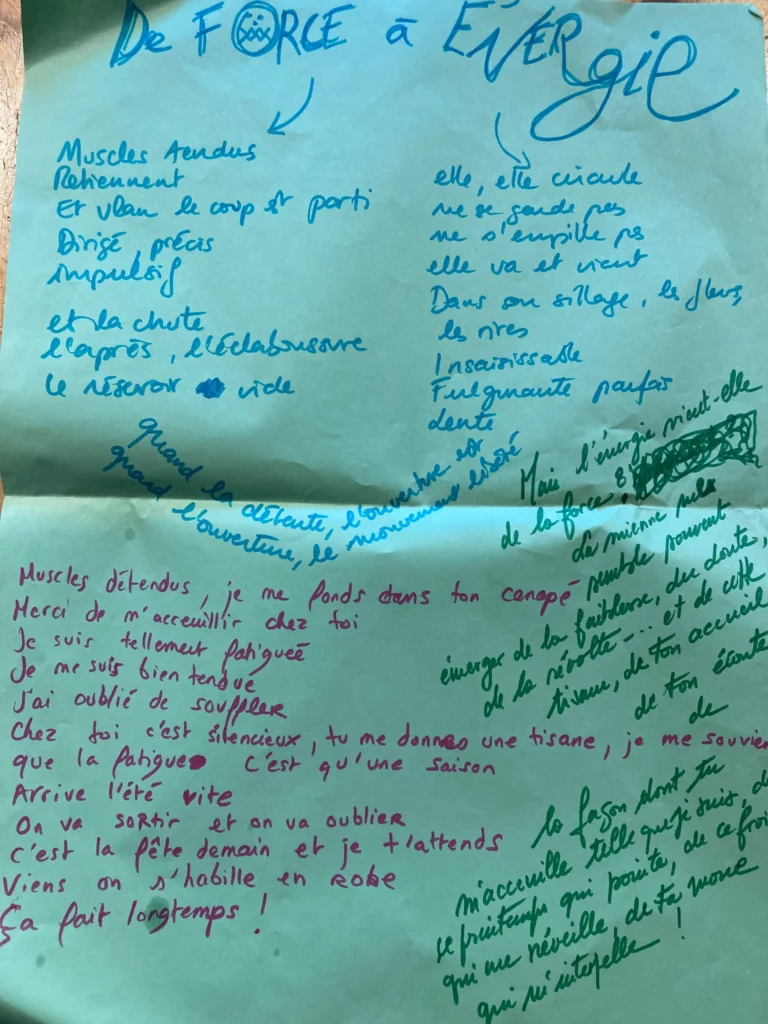 De FORCE à ÉNERgie
Muscles tendus
Retiennent
Et vlan le coup st parti
Dirigé, précis
impulsif
et la chute
l'après, l'éclaboussure
le réservoir vide
elle, elle circule
ne se garde pas
ne s'empile ps
elle va et vient
Dans son sillage, les fleurs,
les rires
Insaisissable
Fulgurante parfois
Lente
quand la détente, l'ouverture est
quand l'ouverture, le mouvement libéré
Mais l'énergie vient-elle
de la force ?
La mienne me
semble souvent
émerger de la faiblesse, du doute,
de la révolte... et de cette
tisane, de ton accueil
de ton écoute
de
la façon dont tu
m'accueille telle que je suis, de
se printemps qui pointe, de ce froi
qui me réveille, de ta
qui m'interpelle !
Muscles détendus, je me fonds dans ton canapé
Merci de m'acceuillir chez toi
Je suis tellement fatigueé
Je me suis bien tendue
J'ai oublié de souffler
Chez toi c'est silencieux, tu me donnes une tisane, je me souvien
que la fatigue c'est qu'une saison
Arrive l'été vite
On va sortir et on va oublier
C'est la fête demain et je t'attends
Viens on s'habille en robe
Ça fait longtemps !